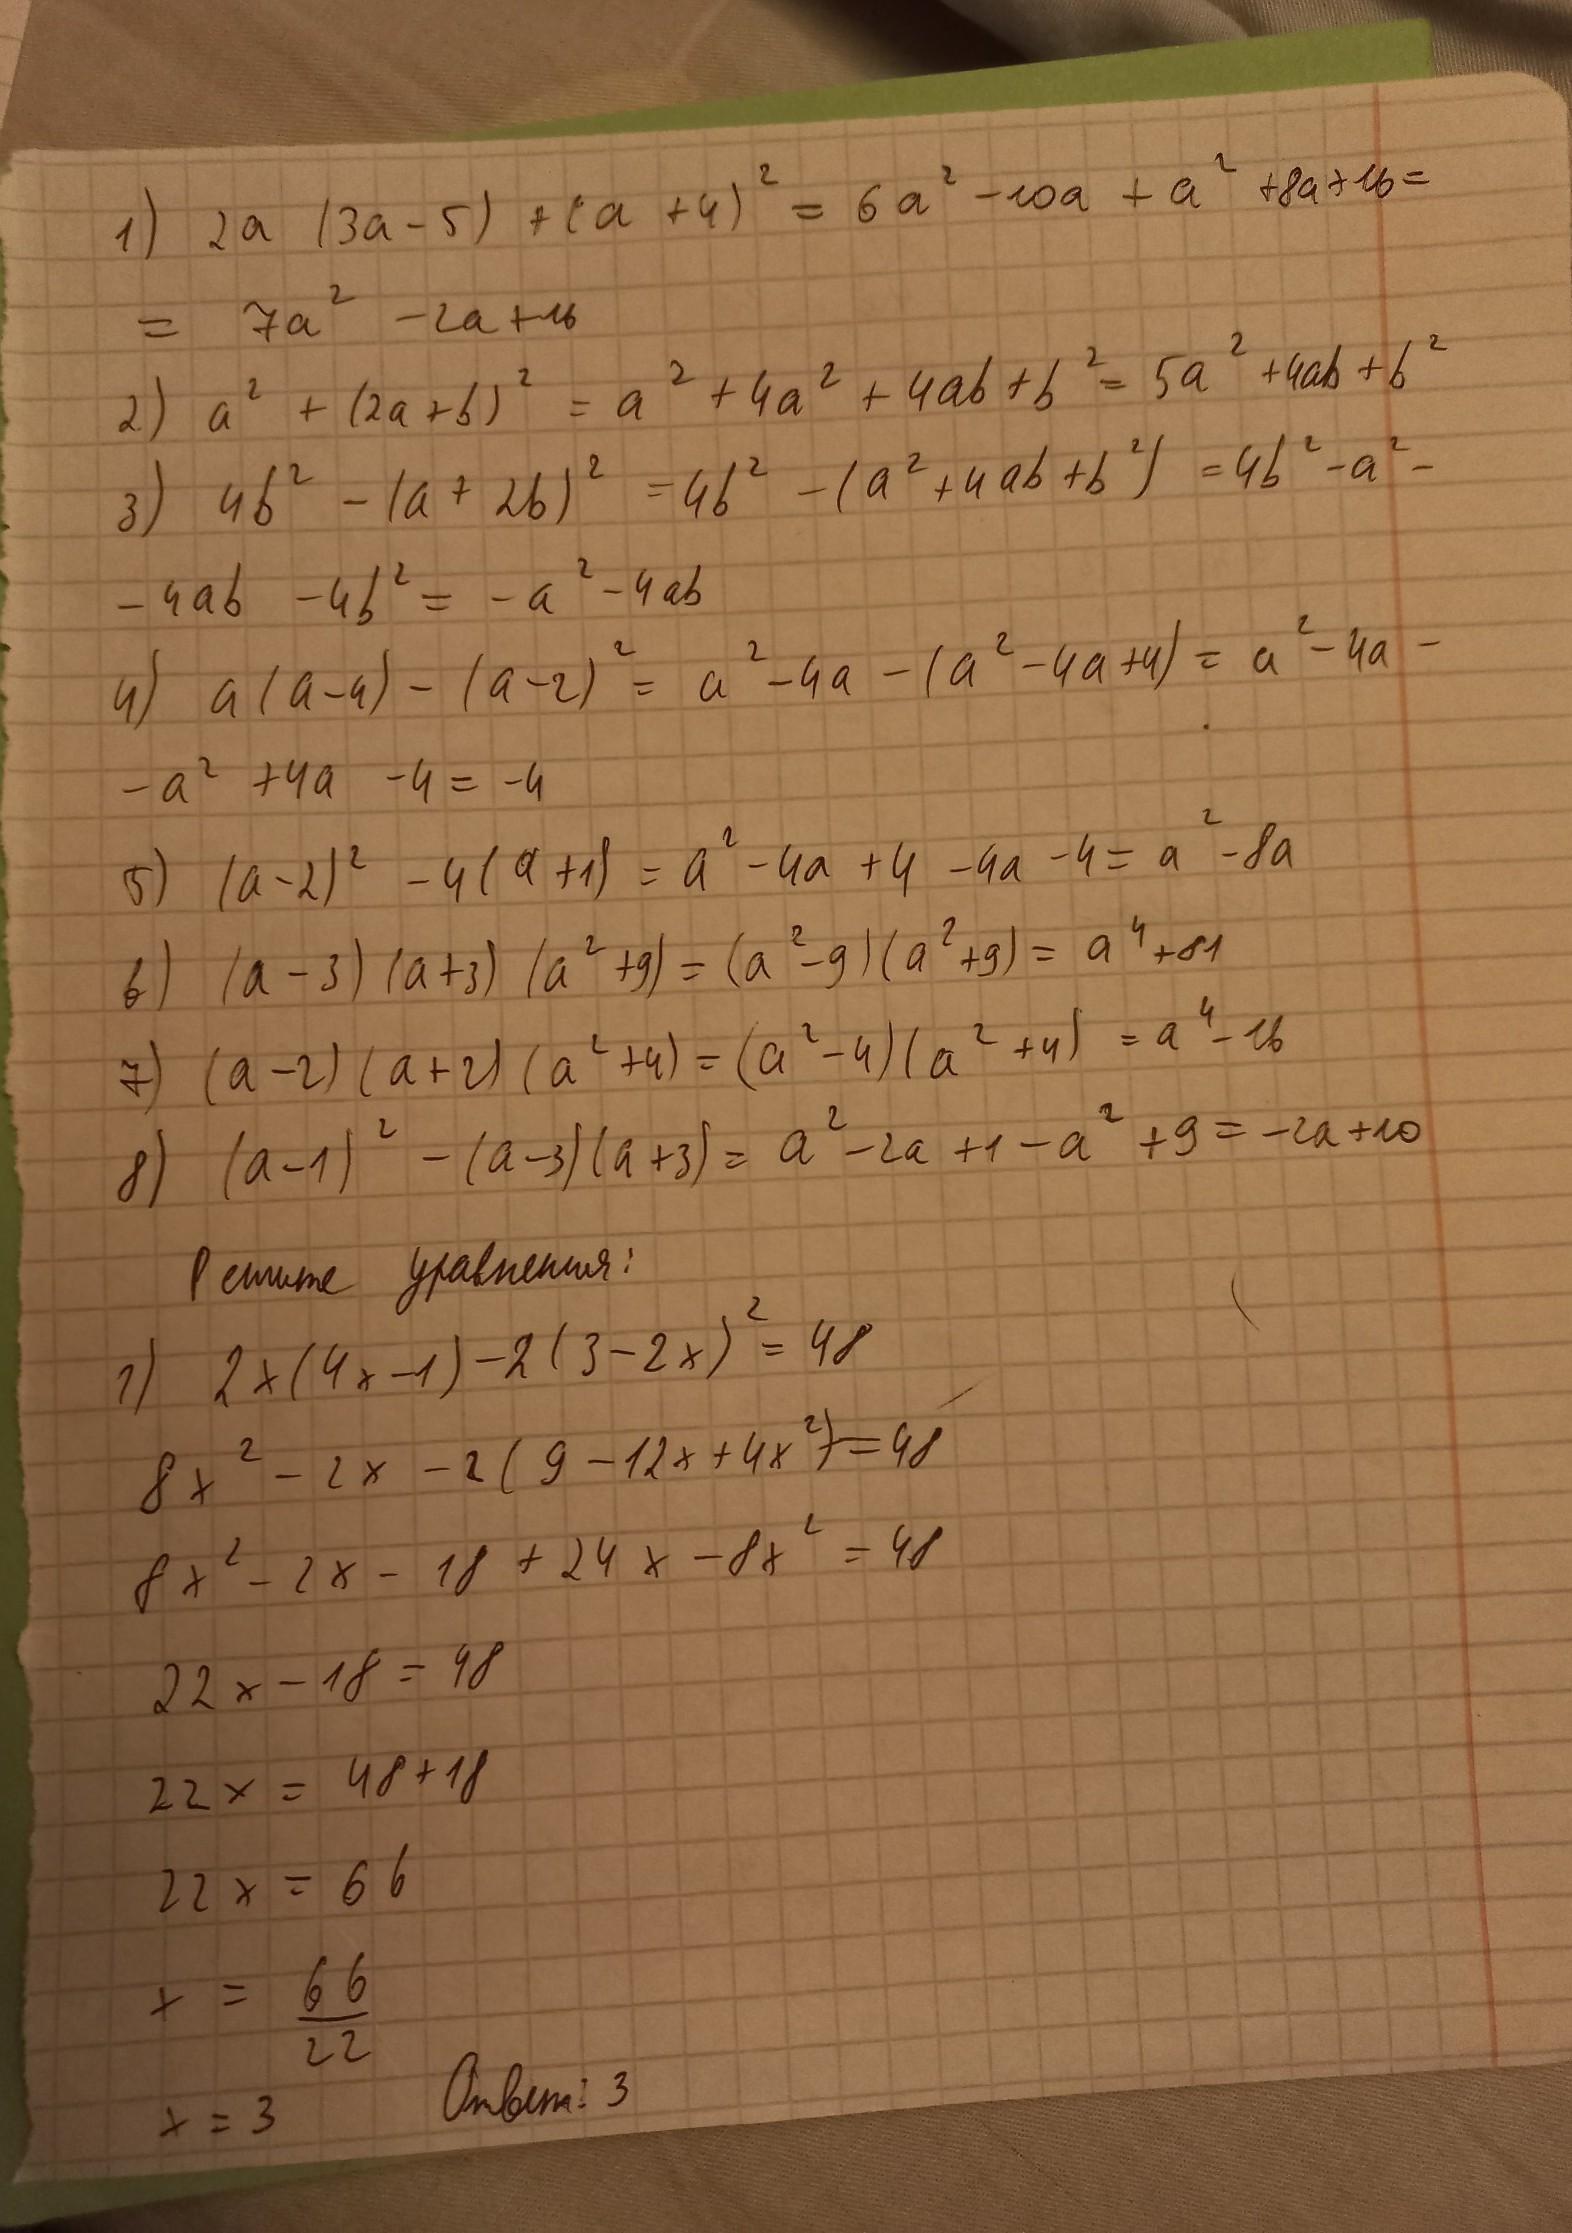 1) 2a (3a - 5) + (a + 4)² = 6a² - 10a + a² + 8a + 16 =
= 7a² - 2a + 16
2) a² + (2a + b)² = a² + 4a² + 4ab + b² = 5a² + 4ab + b²
3) 4b² - (a + 2b)² = 4b² - (a² + 4ab + b²) = 4b² - a² -
- 4ab - 4b² = - a² - 4ab
4) a (a - 4) - (a - 2)² = a² - 4a - (a² - 4a + 4) = a² - 4a -
- a² + 4a - 4 = -4
5) (a - 2)² - 4 (a + 1) = a² - 4a + 4 - 4a - 4 = a² - 8a
6) (a - 3) (a + 3) (a² + 9) = (a² - 9) (a² + 9) = a⁴ + 81
7) (a - 2) (a + 2) (a² + 4) = (a² - 4) (a² + 4) = a⁴ - 16
8) (a - 1)² - (a - 3) (a + 3) = a² - 2a + 1 - a² + 9 = -2a + 10
Решите уравнения:
1) 2x (4x - 1) - 2 (3 - 2x)² = 48
8x² - 2x - 2 (9 - 12x + 4x²) = 48
8x² - 2x - 18 + 24x - 8x² = 48
22x - 18 = 48
22x = 48 + 18
22x = 66
x = 66/22
x = 3 Ответ: 3